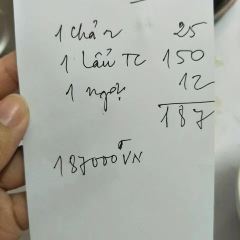 1 chả 2 25
1 Lẩu TC 150
1 ngọt 12
187
187000đ VN